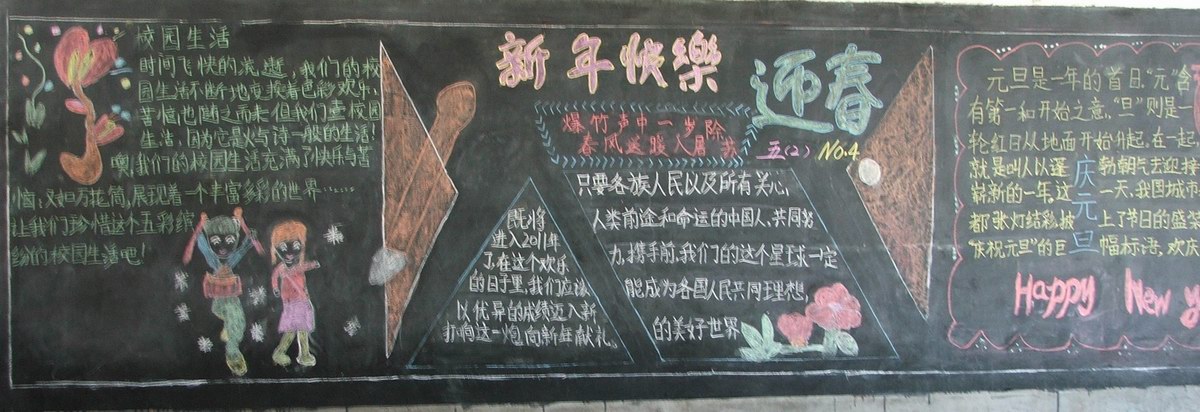 校园生活
时间飞快的流逝，我们的校
园生活不断地变换着色彩欢乐，
苦恼也随之而来但我们爱校园
生活，因为它是火与诗一般的生活！
噢，我们的校园生活充满了快乐与苦
恼；又如万花筒，展现着一个丰富多彩的世界……
让我们珍惜这个五彩缤
纷的校园生活吧！
新年快樂
迎春
爆竹声中一岁除
春风送暖入屠苏
五(2) No.4
既将
进入2011年
了在这个欢乐
的日子里，我们应该
以优异的成绩迈入新
打响这一炮，向新年献礼。
只要各族人民以及所有关心，
人类前途和命运的中国人、共同努
力，携手前，我们的这个星球一定
能成为各国人民共同理想，
的美好世界
元旦是一年的首日."元"含
有第一和开始之意，"旦"则是一
轮红日从地面开始升起.在一起，
就是叫人以蓬勃朝气去迎接
崭新的一年，这一天，我国城市
都张灯结彩，披上了节日的盛
"庆祝元旦"的巨幅标语，欢庆
庆元旦
Happy New